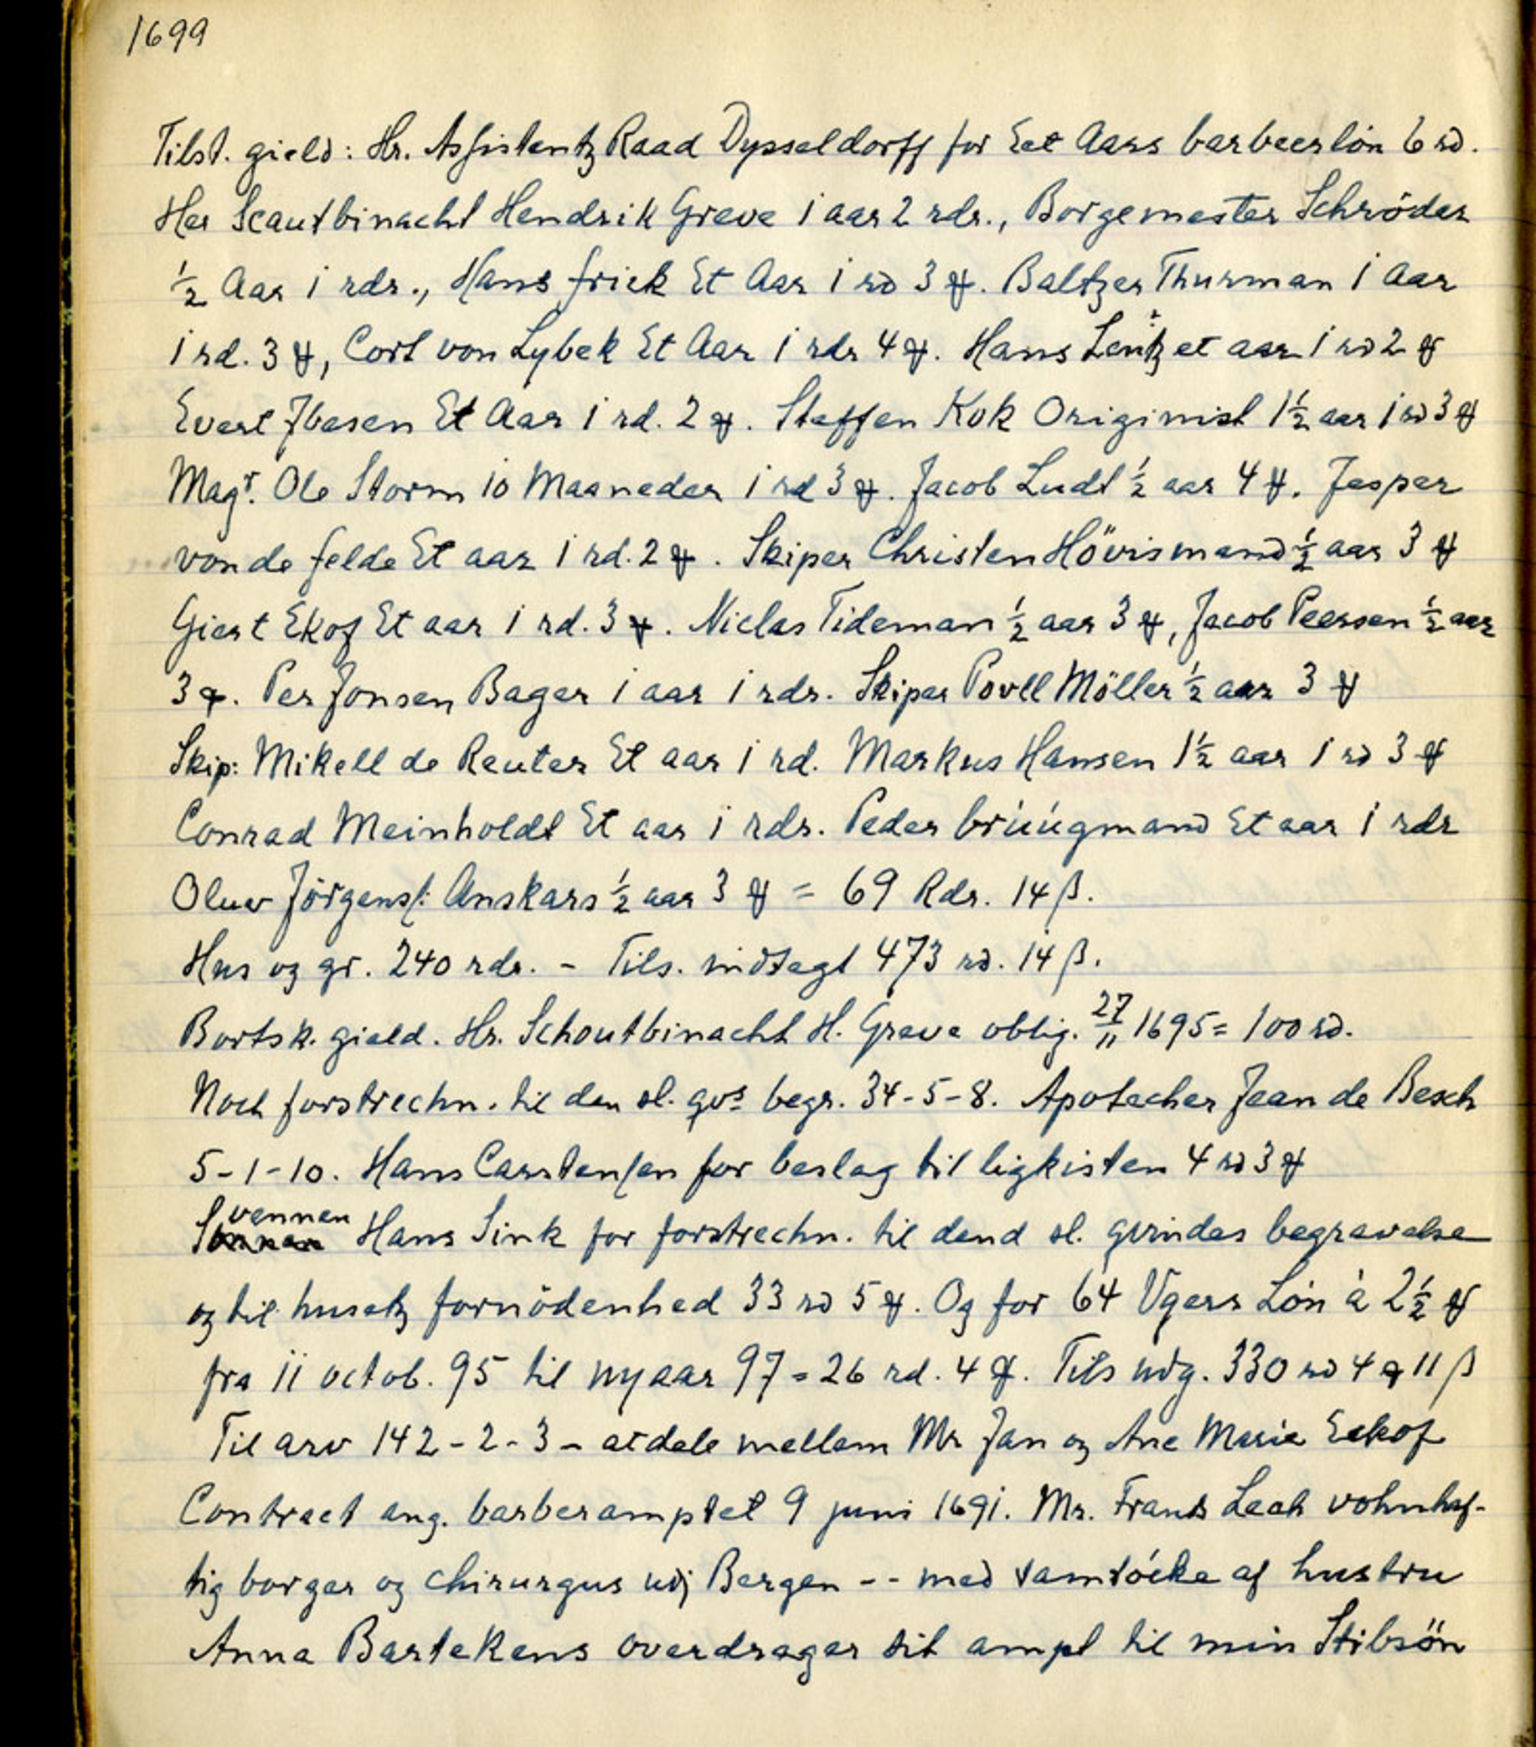 1699
Tilst. gield: Hr. Assistentz Raad Dysseldorff for Eet Aars barbeerlón 6 rd.
Her Scautbinacht Hendrik Greve 1 aar 2 rdr., Borgemester Schröder
½ Aar 1 rdr., Hans friek Et Aar 1 rd 3 ꝟ. Baltzer Thurman 1 Aar
1 rd. 3 ꝟ, Cort von Lybek Et Aar 1 rdr 4 ꝟ. Hans Lentz et aar 1 rd 2 ꝟ
Evert Ibesen Et Aar 1 rd. 2 ꝟ. Steffen Kok Originist 1½ aar 1 rd 3 ꝟ
Magr. Ole Storm 10 Maaneder 1 rd 3 ꝟ. Jacob Ludt ½ aar 4 ꝟ. Jesper
von de felde Et aar 1 rd. 2 ꝟ. Skiper Christen Hövismand ½ aar 3 ꝟ
Giert Ekof Et aar 1 rd. 3 ꝟ. Niclas Tideman ½ aar 3 ꝟ, Jacob Peersen ½ aar
3 ꝟ. Per Jonsen Bager 1 aar 1 rdr. Skiper Povll Möller ½ aar 3 ꝟ
Skip: Mikell de Reuter Et aar 1 rd. Markus Hansen 1½ aar 1 rd 3 ꝟ
Conrad Meinholdt Et aar 1 rdr. Peder brúúgmand Et aar 1 rdr
Oluv Jörgens: Anskars ½ aar 3 ꝟ = 69 Rdr. 14 β.
Hus og gr. 240 rdr. - Tils. indtegt 473 rd. 14 β.
Bortsk. gield. Hr. Schoutbinacht H. Greve oblig. 27/11 1695 = 100 rd.
Noch forstrechn. til den sl. qvs begr. 34-5-8. Apotecher Jean de Besch
5-1-10. Hans Carstensen for beslag til ligkisten 4 rd 3 ꝟ
Svennen Hans Sink for forstrechn. til dend sl. qvindes begravelse
og til husetz fornödenhed 33 rd 5 ꝟ. Og for 64 Vgers Lón à 2½ ꝟ
fra 11 octob. 95 til nyaar 97 = 26 rd. 4 ꝟ. Tils udg. 330 rd 4 ꝟ 11 β
Til arv 142-2-3 - atdele mellem Mr Jan og Ane Marie Eekof
Contract ang. barberamptet 9 juni 1691. Mr. Frants Lech vohnhaf-
tig borger og chirurgus udj Bergen -- med samtócke af hustru
Anna Bartekens overdrager sit ampt til min Stibsön